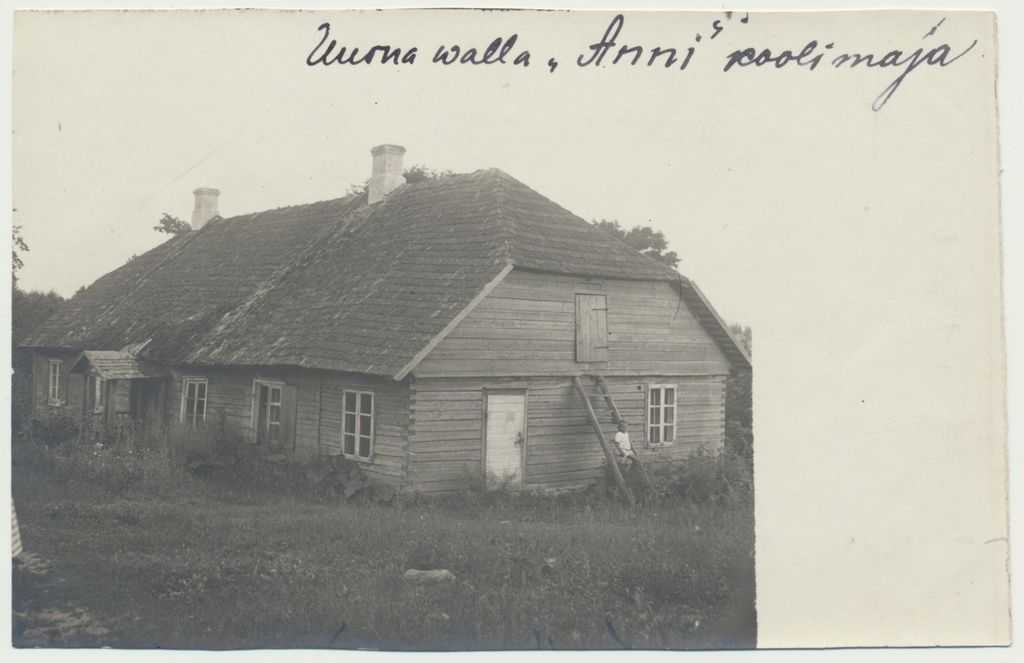 Uuena walla „Anni" koolimaja